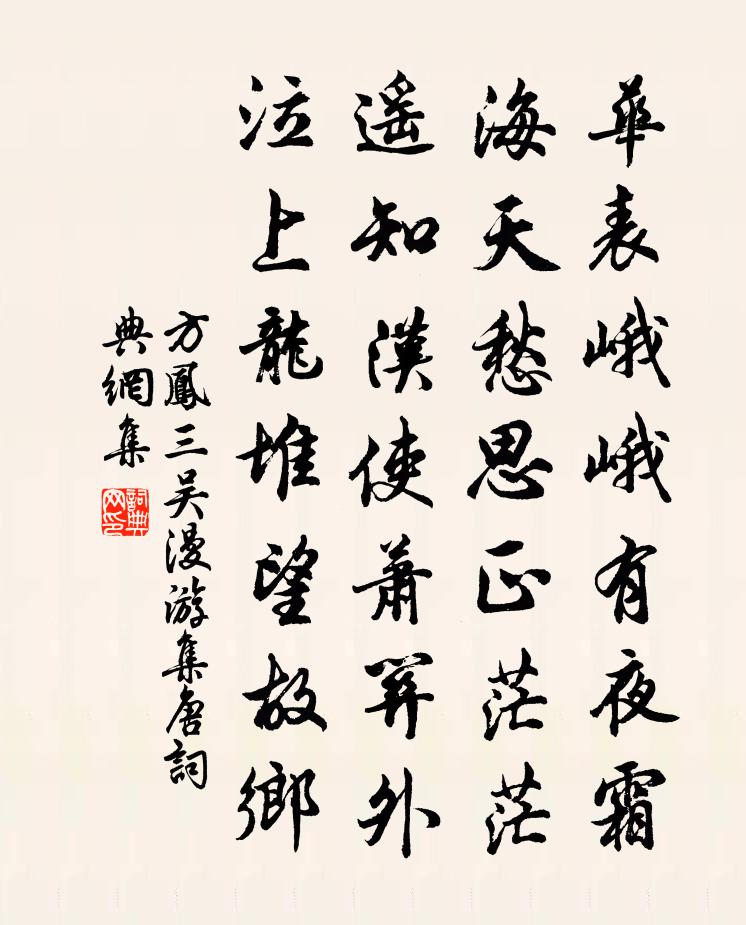 華表峨峨有夜霜
海天愁思正茫茫
遥知漢使蕭關外
泣上龍堆望故鄉
方鳳三吴漫游集唐詞
典網集
詞典
网印